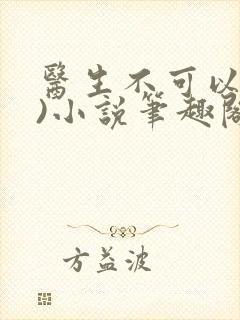 醫生不可以
)小說筆趣閣
方益波